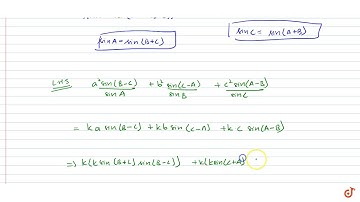 sinA = sin(B+C)
sinC = sin(A+B)
LHS a² sin(B-C)/sinA + b² sin(C-A)/sinB + c² sin(A-B)/sinC
= ka sin(B-C) + kb sin(C-A) + kc sin(A-B)
⇒ k(k sin(B+C) sin(B-C)) + k(k sin(C+A)